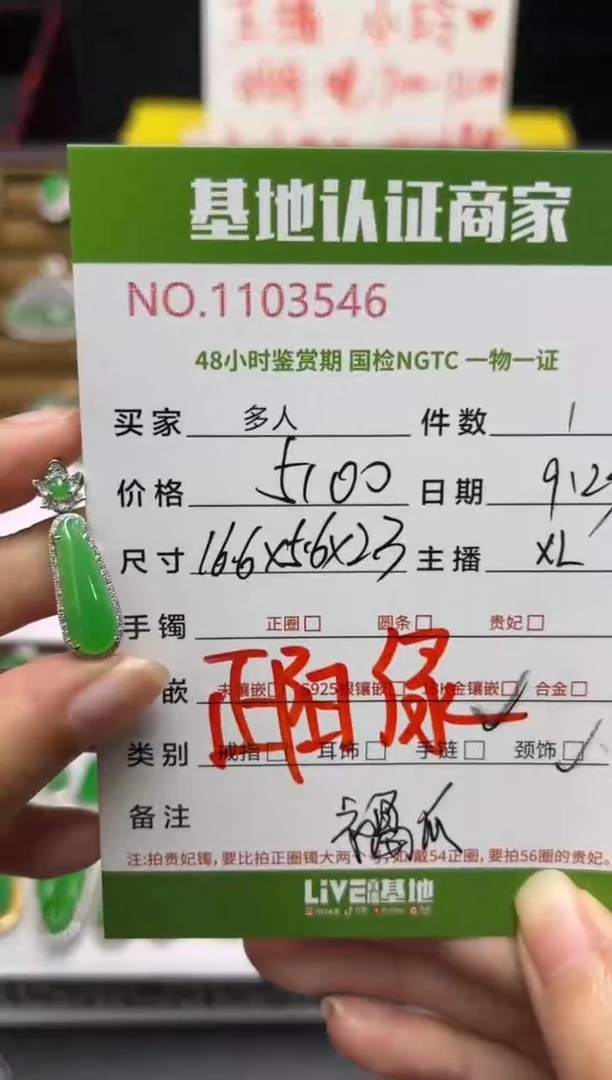 基地认证商家
NO.1103546
48小时鉴赏期 国检NGTC 一物一证
买家 多人 件数 1
价格 5100 日期 9.2
尺寸 16.6x5.6x2.3 主播 XL
手镯 正圈□ 圆条□ 贵妃□
嵌 未镶嵌□ S925银镶嵌□ 18K金镶嵌□ 合金□
正阳绿
类别 戒指□ 耳饰□ 手链□ 颈饰□
备注 福瓜
注:拍贵妃镯,要比拍正圈镯大两个号,如戴54正圈,要拍56圈的贵妃。
LiVE 基地